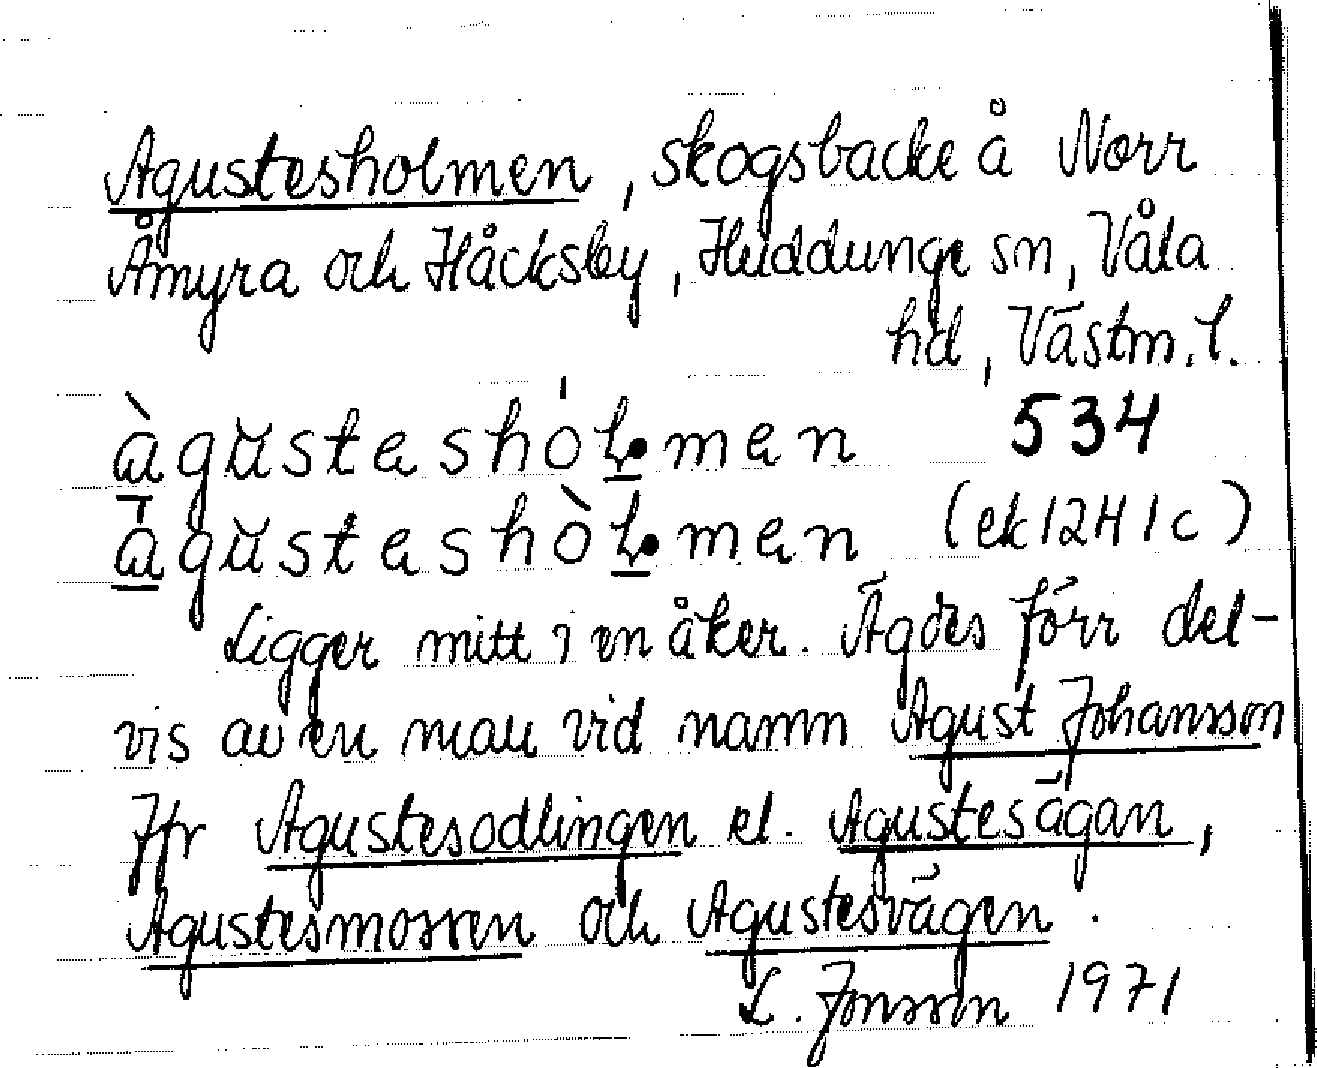 Agustesholmen, skogsbacke å Norr
Åmyra och Håcksby, Huddunge sn, Våla
hd, Västm. l.
àgŭstashól̠•man 534
a̠gŭstashòl̠•man (ek 12H 1c)
Ligger mitt i en åker. Ägdes förr del-
vis av en man vid namn Agust Johansson
Jfr Agustesodlingen el. Agustesägan,
Agustesmossen och Agustesvägen.
L. Jonsson 1971